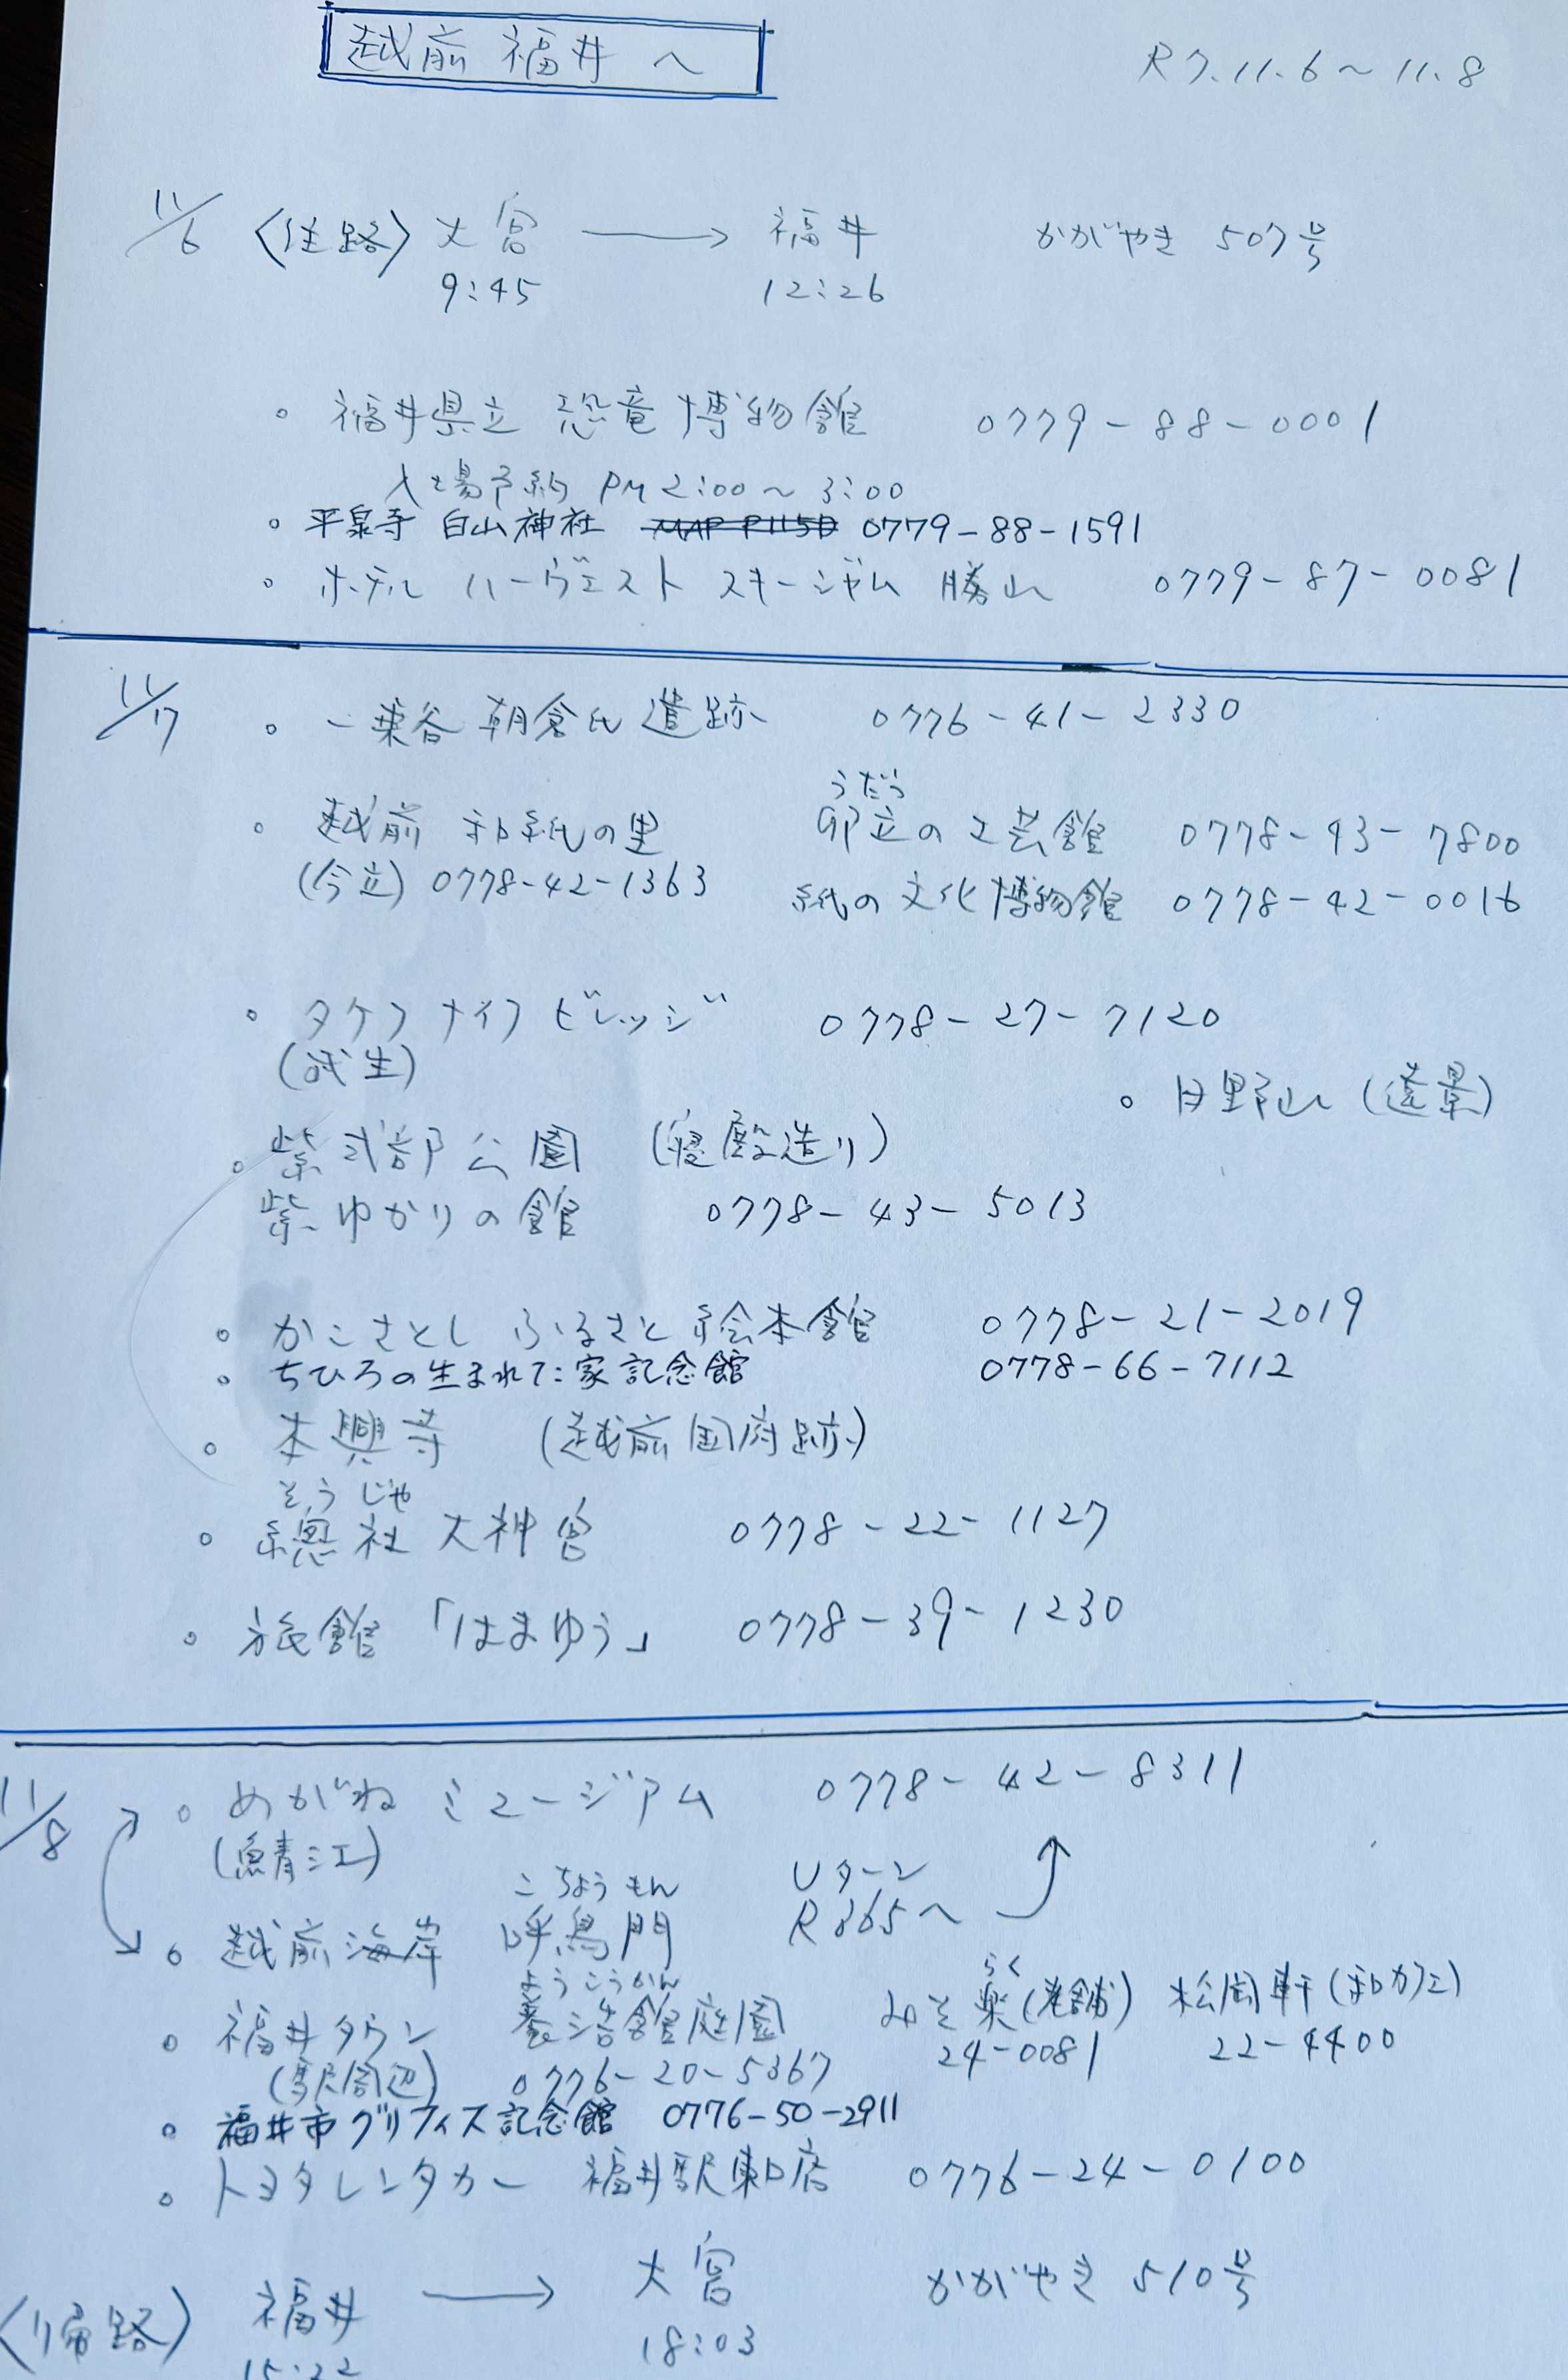 越前 福井 へ
R7.11.6〜11.8
11/6 〈往路〉 大宮 → 福井 かがやき 507号
9:45 12:26
○ 福井県立 恐竜博物館 0779-88-0001
入場予約 PM 2:00〜3:00
○ 平泉寺 白山神社 MAP P115D 0779-88-1591
○ ホテル ハーヴェスト スキージャム 勝山 0779-87-0081
11/7 ○ 一乗谷 朝倉氏 遺跡 0776-41-2330
うだつ
○ 越前 和紙の里 卯立の工芸館 0778-43-7800
(今立) 0778-42-1363 紙の文化博物館 0778-42-0016
○ タケフ ナイフ ビレッジ 0778-27-7120
(武生)
○ 日野山 (遠景)
○ 紫式部公園 (寝殿造り)
紫ゆかりの館 0778-43-5013
○ かこさとし ふるさと 絵本館 0778-21-2019
○ ちひろの生まれた家記念館 0778-66-7112
○ 本興寺 (越前国府跡)
そう じゃ
○ 總社 大神宮 0778-22-1127
○ 旅館 「はまゆう」 0778-39-1230
11/8 ○ めがね ミュージアム 0778-42-8311
(鯖江)
こ ちょう もん Uターン
○ 越前海岸 呼鳥門 R365へ
ようこうかん らく
○ 福井タウン 養浩館庭園 みそ楽(老舗) 松岡軒(和カフェ)
(駅周辺) 0776-20-5367 24-0081 22-4400
○ 福井市グリフィス記念館 0776-50-2911
○ トヨタレンタカー 福井駅東口店 0776-24-0100
〈帰路〉 福井 → 大宮 かがやき 510号
15:22 18:03